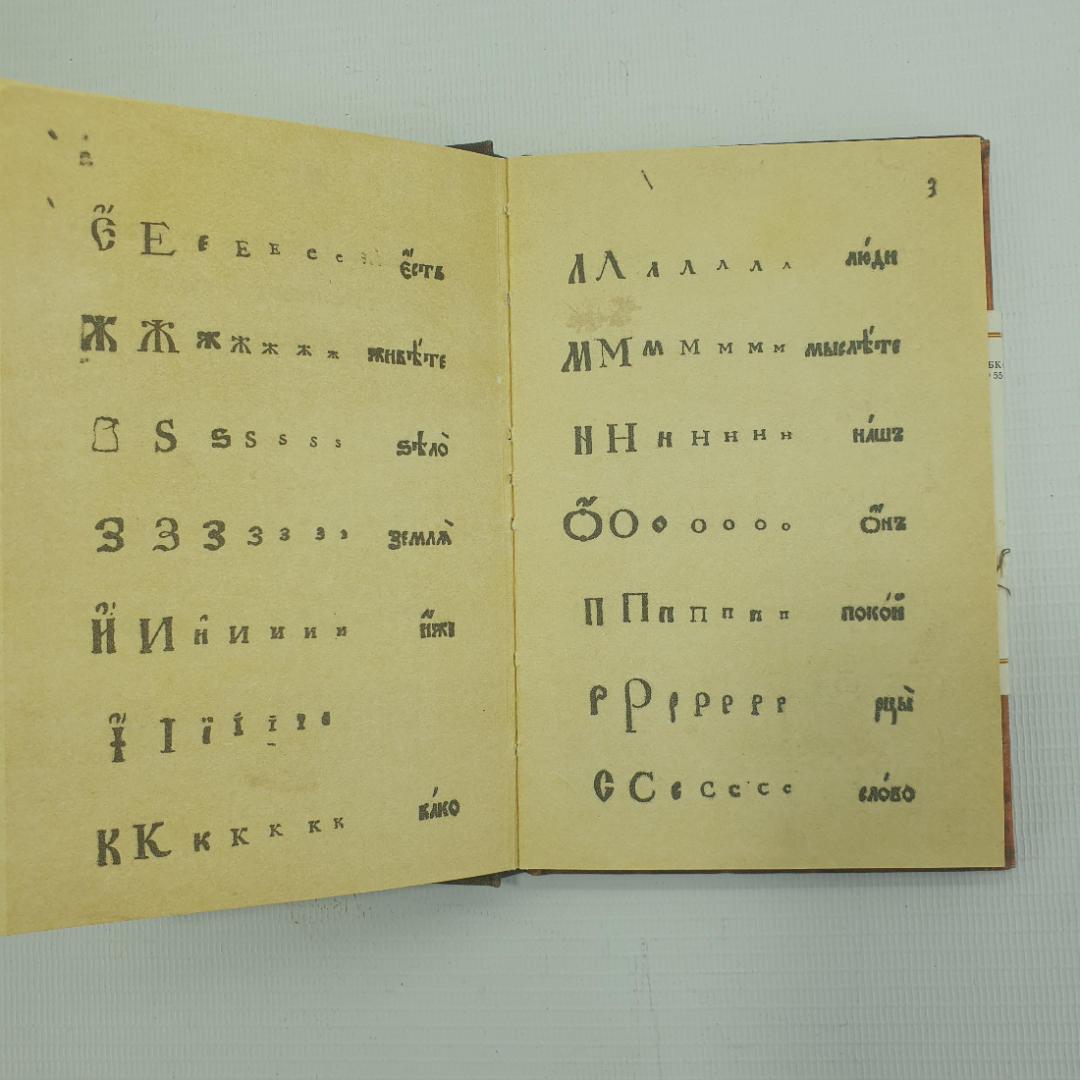 Є҆́ Е є Е Е с с є҆́сть
Ж Ж ж ж ж ж ж живѣ́те
Ѕ ѕ ѕ ѕ ѕ ѕ ѕѣлѡ̀
З З З З з з з землѧ̀
И҆́ И и И и и и и҆́жє
І҆ І ї і і і
К К к К к к к ка́ко
з
Л Л л л л л л лю́ди
М М м м м м м мыслѣ́те
Н Н н н н н н на́шъ
Ѻ҆́ О о о о о о ѻ҆́нъ
П П п п п п п поко́й
Р Р р р р р р рцы̀
С С с с с с с сло́во
БК
55